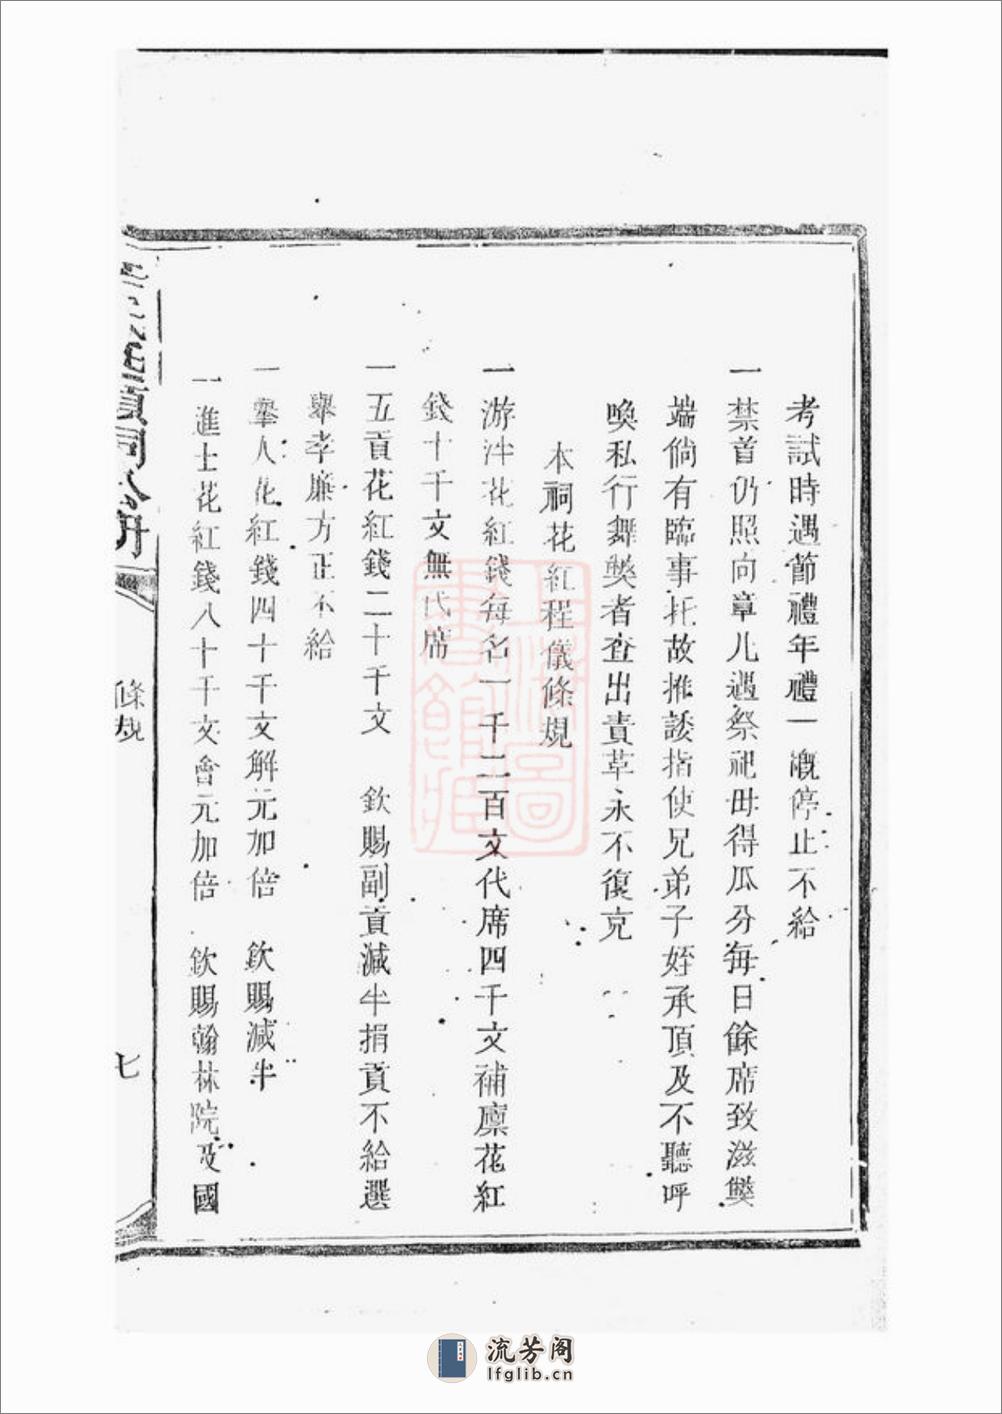 考試時遇節禮年禮一槪停止不給
一禁首仍照向章凡遇祭祀毋得瓜分每日餘席致滋弊
端倘有臨事托故推諉指使兄弟子姪承頂及不聽呼
喚私行舞獘者查出責革永不復充
本祠花紅程儀條規
一游泮花紅錢每名一千二百文代席四千文補廪花紅
錢十千文無代席
一五貢花紅錢二十千文 欽賜副貢減半捐貢不給選
舉孝廉方正不給
一舉人花紅錢四十千文解元加倍 欽賜減半
一進士花紅錢八十千文會元加倍 欽賜翰林院及國
條規
七
流芳阁
lfglib.cn